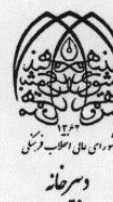 ۱۳۶۲
شورای عالی انقلاب فرهنگی
دبیرخانه